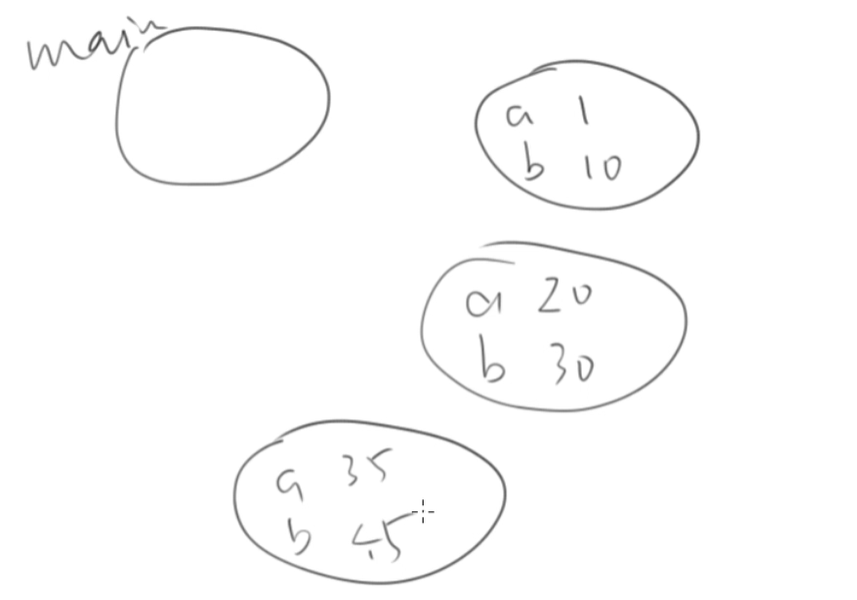 main
a 1
b 10
a 20
b 30
a 35
b 45